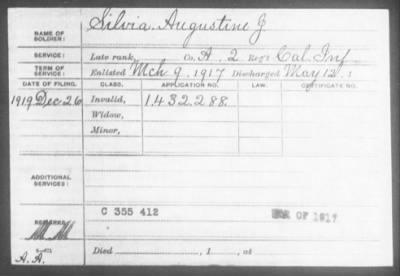 NAME OF SOLDIER: Silvia, Augustine J
SERVICE: Late rank, Co. A, 2 Reg't Cal. Inf
TERM OF SERVICE: Enlisted Mch 9, 1917 Discharged May 12, 1
DATE OF FILING. CLASS. APPLICATION NO. LAW. CERTIFICATE NO.
1919 Dec 26 Invalid, 1.432.288
Widow,
Minor,
ADDITIONAL SERVICES:
C 355 412 WAR OF 1917
REMARKS:
A.A. Died , 1 , at